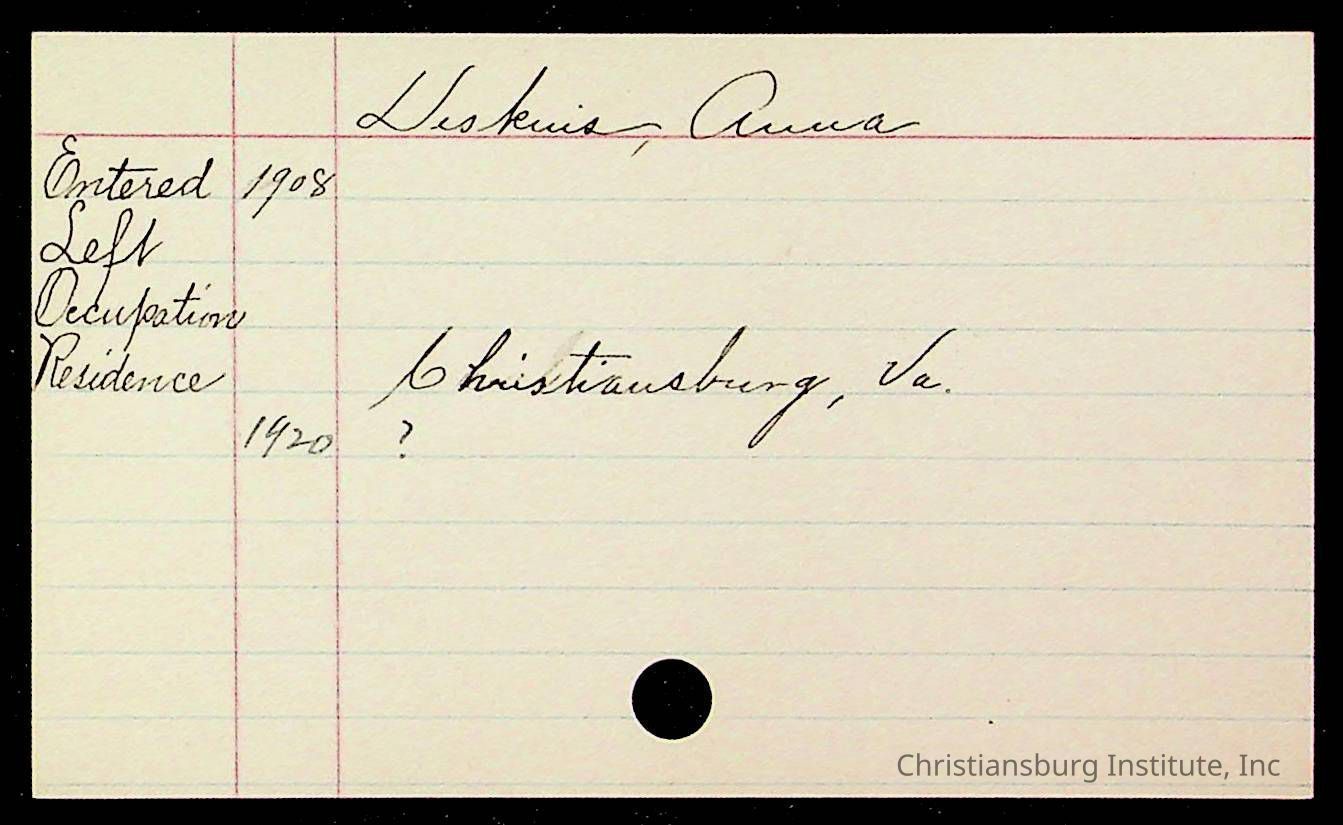 Deskins, Anna
Entered 1908
Left
Occupation
Residence Christiansburg, Va.
1920 ?
Christiansburg Institute, Inc